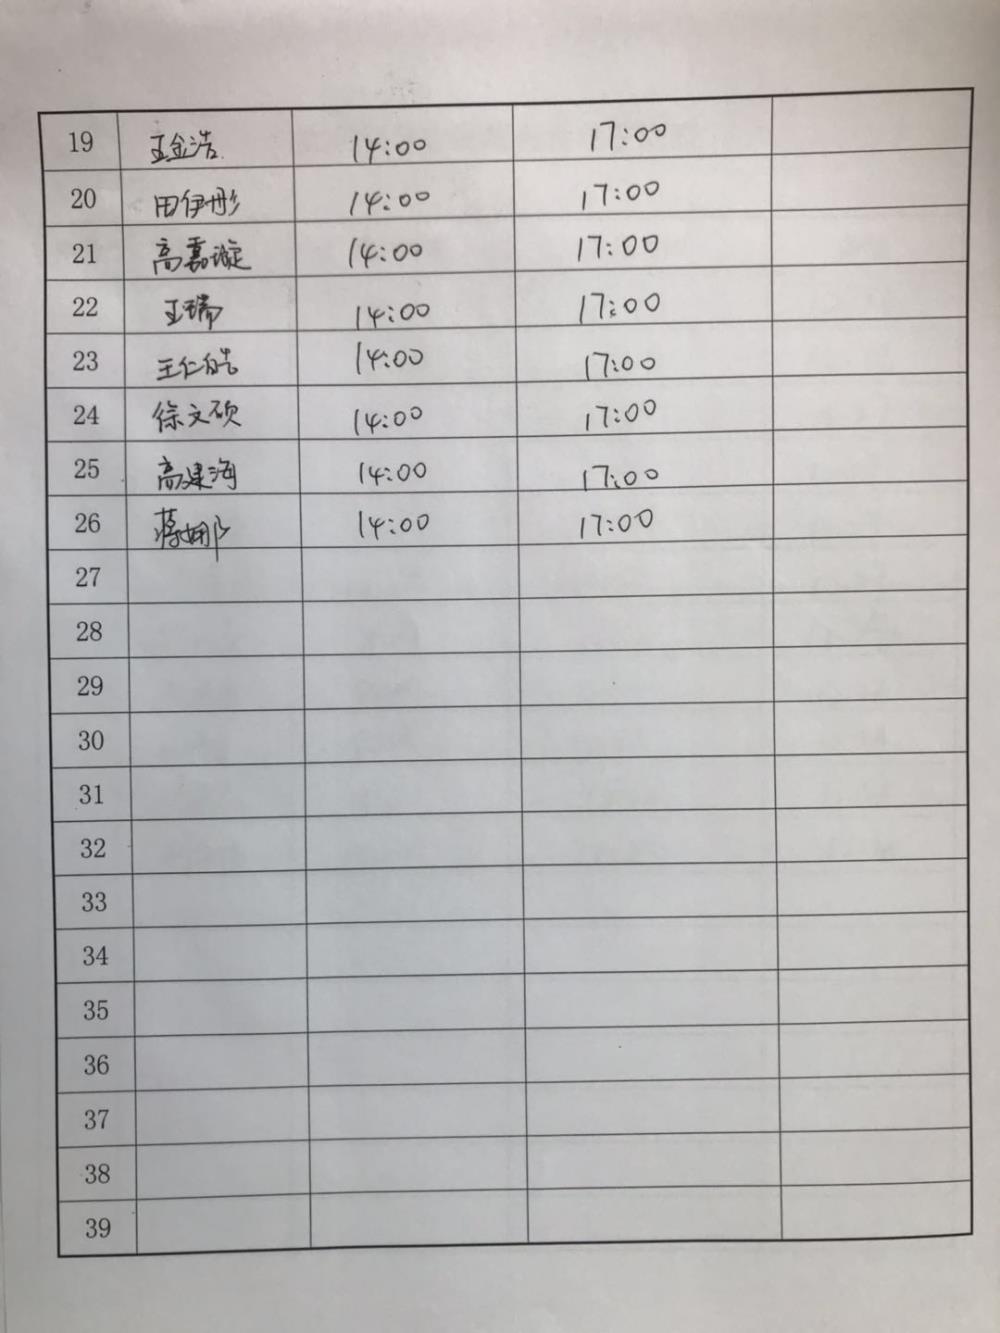 19 王金浩 14:00 17:00
20 田伊彤 14:00 17:00
21 高嘉璇 14:00 17:00
22 王瑞 14:00 17:00
23 王仁皓 14:00 17:00
24 徐文硕 14:00 17:00
25 高建海 14:00 17:00
26 蒋娜 14:00 17:00
27
28
29
30
31
32
33
34
35
36
37
38
39